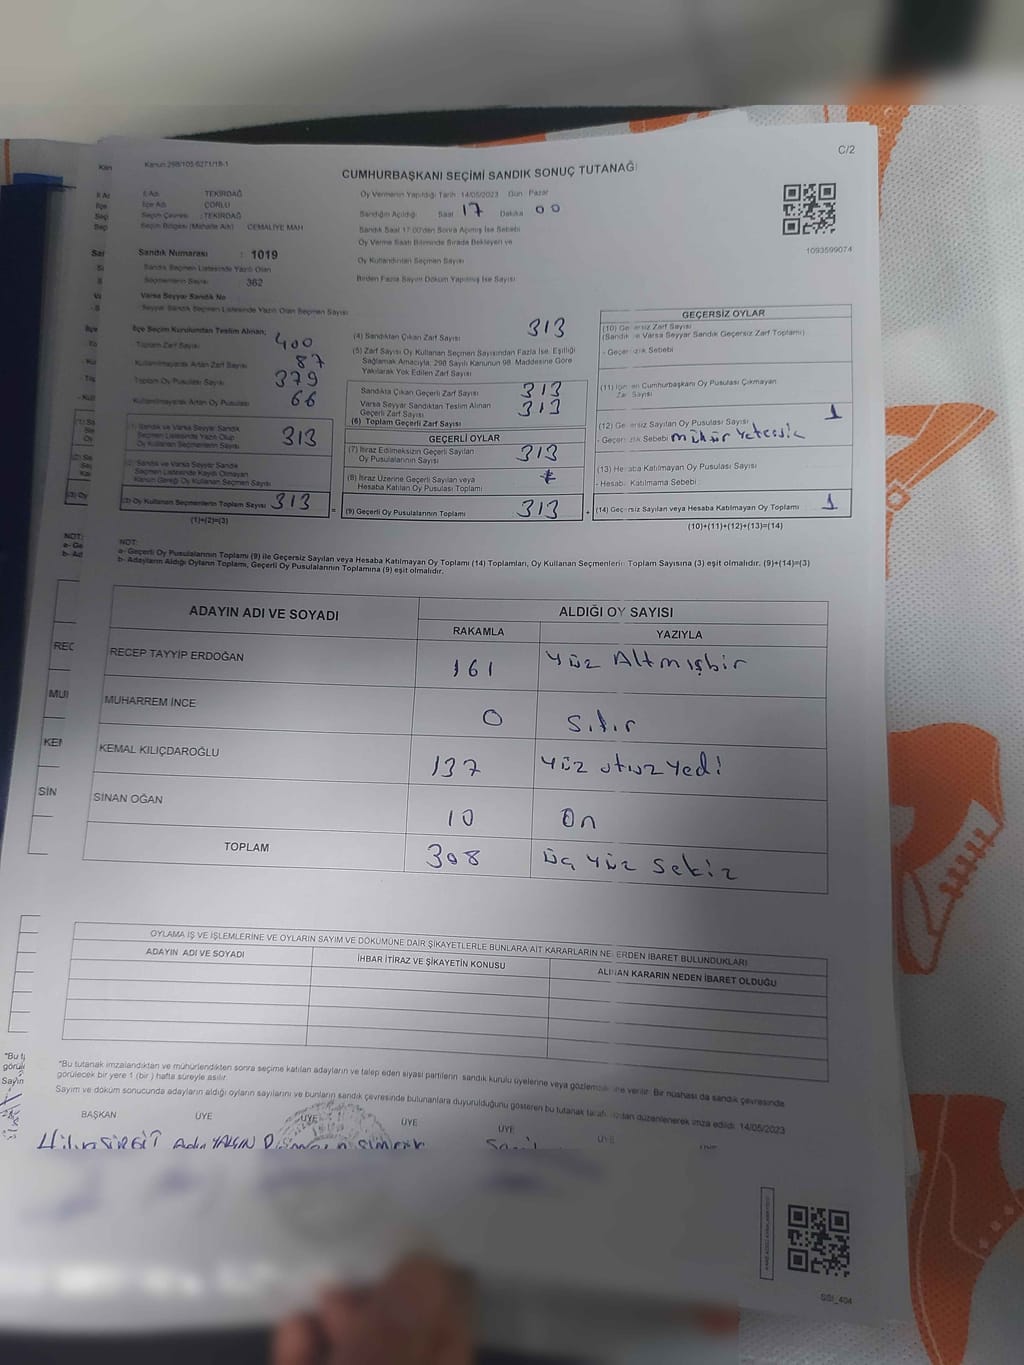 Kanun 298/105-6271/18-1
C/2
CUMHURBAŞKANI SEÇİMİ SANDIK SONUÇ TUTANAĞI
İl Adı : TEKİRDAĞ
İlçe Adı : ÇORLU
Seçim Çevresi : TEKİRDAĞ
Seçim Bölgesi (Mahalle Adı) CEMALİYE MAH
Sandık Numarası : 1019
Sandık Seçmen Listesinde Yazılı Olan
Seçmenlerin Sayısı 362
Varsa Seyyar Sandık No
Seyyar Sandık Seçmen Listesinde Yazılı Olan Seçmen Sayısı
Oy Vermenin Yapıldığı Tarih : 14/05/2023 Gün : Pazar
Sandığın Açıldığı Saat 17 Dakika 00
Sandık Saat 17:00'den Sonra Açılmış İse Sebebi
Oy Verme Saati Bitiminde Sırada Bekleyen ve
Oy Kullandırılan Seçmen Sayısı
Birden Fazla Sayım Döküm Yapılmış İse Sayısı
1093599074
İlçe Seçim Kurulundan Teslim Alınan;
Toplam Zarf Sayısı 400
Kullanılmayarak Artan Zarf Sayısı 87
Toplam Oy Pusulası Sayısı 379
Kullanılmayarak Artan Oy Pusulası 66
(1) Sandık ve Varsa Seyyar Sandık
Seçmen Listesinde Yazılı Olup
Oy Kullanan Seçmenlerin Sayısı 313
(2) Sandık ve Varsa Seyyar Sandık
Seçmen Listesinde Kaydı Olmayan
Kanun Gereği Oy Kullanan Seçmen Sayısı
(3) Oy Kullanan Seçmenlerin Toplam Sayısı 313
(1)+(2)=(3)
(4) Sandıktan Çıkan Zarf Sayısı 313
(5) Zarf Sayısı Oy Kullanan Seçmen Sayısından Fazla İse, Eşitliği
Sağlamak Amacıyla, 298 Sayılı Kanunun 98. Maddesine Göre
Yakılarak Yok Edilen Zarf Sayısı
Sandıkta Çıkan Geçerli Zarf Sayısı 313
Varsa Seyyar Sandıktan Teslim Alınan
Geçerli Zarf Sayısı 313
(6) Toplam Geçerli Zarf Sayısı
GEÇERLİ OYLAR
(7) İtiraz Edilmeksizin Geçerli Sayılan
Oy Pusulalarının Sayısı 313
(8) İtiraz Üzerine Geçerli Sayılan veya
Hesaba Katılan Oy Pusulası Toplamı
(9) Geçerli Oy Pusulalarının Toplamı 313
GEÇERSİZ OYLAR
(10) Geçersiz Zarf Sayısı
(Sandık ve Varsa Seyyar Sandık Geçersiz Zarf Toplamı)
- Geçersizlik Sebebi
(11) İçinden Cumhurbaşkanı Oy Pusulası Çıkmayan
Zarf Sayısı
(12) Geçersiz Sayılan Oy Pusulası Sayısı 1
- Geçersizlik Sebebi mühür yetersiz
(13) Hesaba Katılmayan Oy Pusulası Sayısı
- Hesaba Katılmama Sebebi :
(14) Geçersiz Sayılan veya Hesaba Katılmayan Oy Toplamı 1
(10)+(11)+(12)+(13)=(14)
NOT:
a- Geçerli Oy Pusulalarının Toplamı (9) ile Geçersiz Sayılan veya Hesaba Katılmayan Oy Toplamı (14) Toplamları, Oy Kullanan Seçmenlerin Toplam Sayısına (3) eşit olmalıdır. (9)+(14)=(3)
b- Adayların Aldığı Oyların Toplamı, Geçerli Oy Pusulalarının Toplamına (9) eşit olmalıdır.
ADAYIN ADI VE SOYADI ALDIĞI OY SAYISI
RAKAMLA YAZIYLA
RECEP TAYYİP ERDOĞAN 161 Yüz Altmışbir
MUHARREM İNCE 0 Sıfır
KEMAL KILIÇDAROĞLU 137 yüz otuz Yedi
SİNAN OĞAN 10 On
TOPLAM 308 üç yüz sekiz
OYLAMA İŞ VE İŞLEMLERİNE VE OYLARIN SAYIM VE DÖKÜMÜNE DAİR ŞİKAYETLERLE BUNLARA AİT KARARLARIN NELERDEN İBARET BULUNDUKLARI
ADAYIN ADI VE SOYADI İHBAR İTİRAZ VE ŞİKAYETİN KONUSU ALINAN KARARIN NEDEN İBARET OLDUĞU
*Bu tutanak imzalandıktan ve mühürlendikten sonra seçime katılan adayların ve talep eden siyasi partilerin sandık kurulu üyelerine veya gözlemcilerine verilir. Bir nüshası da sandık çevresinde
görülecek bir yere 1 (bir) hafta süreyle asılır.
Sayım ve döküm sonucunda adayların aldığı oyların sayılarını ve bunların sandık çevresinde bulunanlara duyurulduğunu gösteren bu tutanak tarafımızdan düzenlenerek imza edildi. 14/05/2023
BAŞKAN ÜYE ÜYE ÜYE ÜYE ÜYE ÜYE
SSI_404